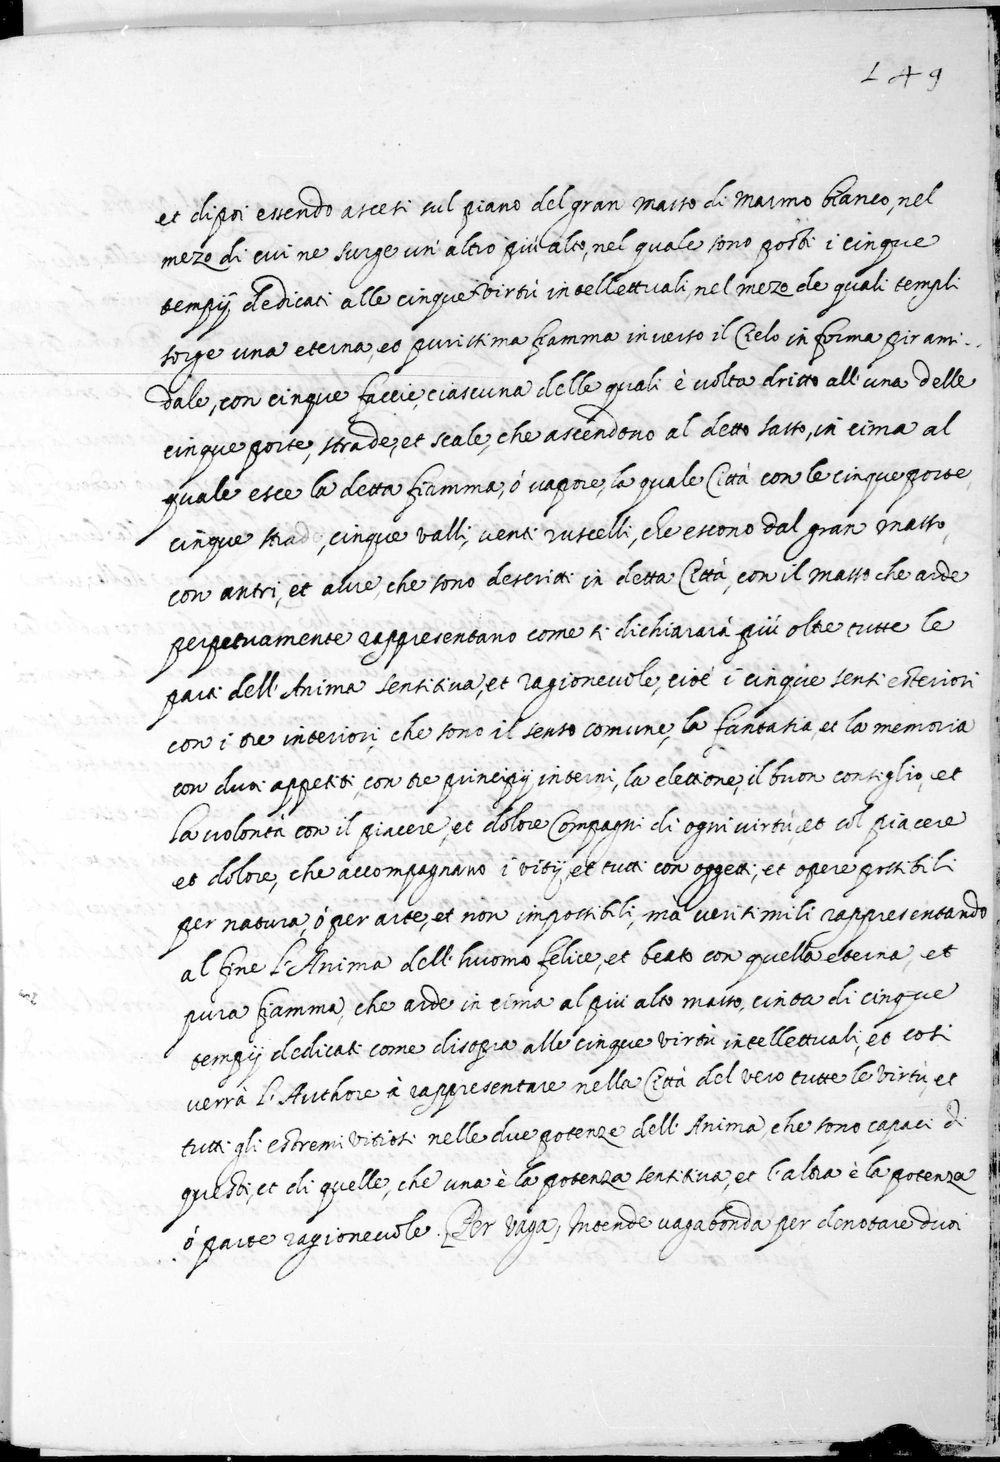 149
et dipoi essendo ascesi sul piano del gran masso di marmo bianco, nel
mezo di cui ne surge un' altro più alto, nel quale sono posti i cinque
tempij dedicati alle cinque virtù intellettuali, nel mezo de quali templi
sorge una eterna, et purissima fiamma inverso il Cielo in forma pirami-
dale, con cinque faccie, ciascuna delle quali è volta dritto all' una delle
cinque porte, strade, et scale, che ascendono al detto sasso, in cima al
quale esce la detta fiamma, ó vapore, la quale Città con le cinque porte,
cinque strade, cinque valli, venti ruscelli, che escono dal gran masso,
con antri, et altre, che sono descritti in detta Città, con il masso che arde
perpetuamente rappresentano come si dichiararà più oltre tutte le
parti dell' Anima sensitiva, et ragionevole, cioè i cinque sensi esteriori
con i tre interiori, che sono il senso comune, la fantasia, et la memoria
con duoi appetiti, con tre principij interni, la elettione, il buon consiglio, et
la volontà con il piacere, et dolore Compagni di ogni virtù, et col piacere
et dolore, che accompagnano i vitij, et tutti con oggetti, et opere possibili
per natura, ó per arte, et non impossibili, mà verisimili rappresentando
al fine l'Anima dell' huomo felice, et beato con quella eterna, et
pura fiamma, che arde in cima al più alto masso, cinta di cinque
tempij dedicati come disopra alle cinque virtù intellettuali, et così
verrà l'Authore à rappresentare nella Città del vero tutte le virtù, et
tutti gli estremi vitiosi nelle due potenze dell' Anima, che sono capaci di
questi, et di quelle, che una è la potenza sensitiva, et l'altra è la potenza
ó parte ragionevole. [Per Vaga, Intende vagabonda per denotare duoi